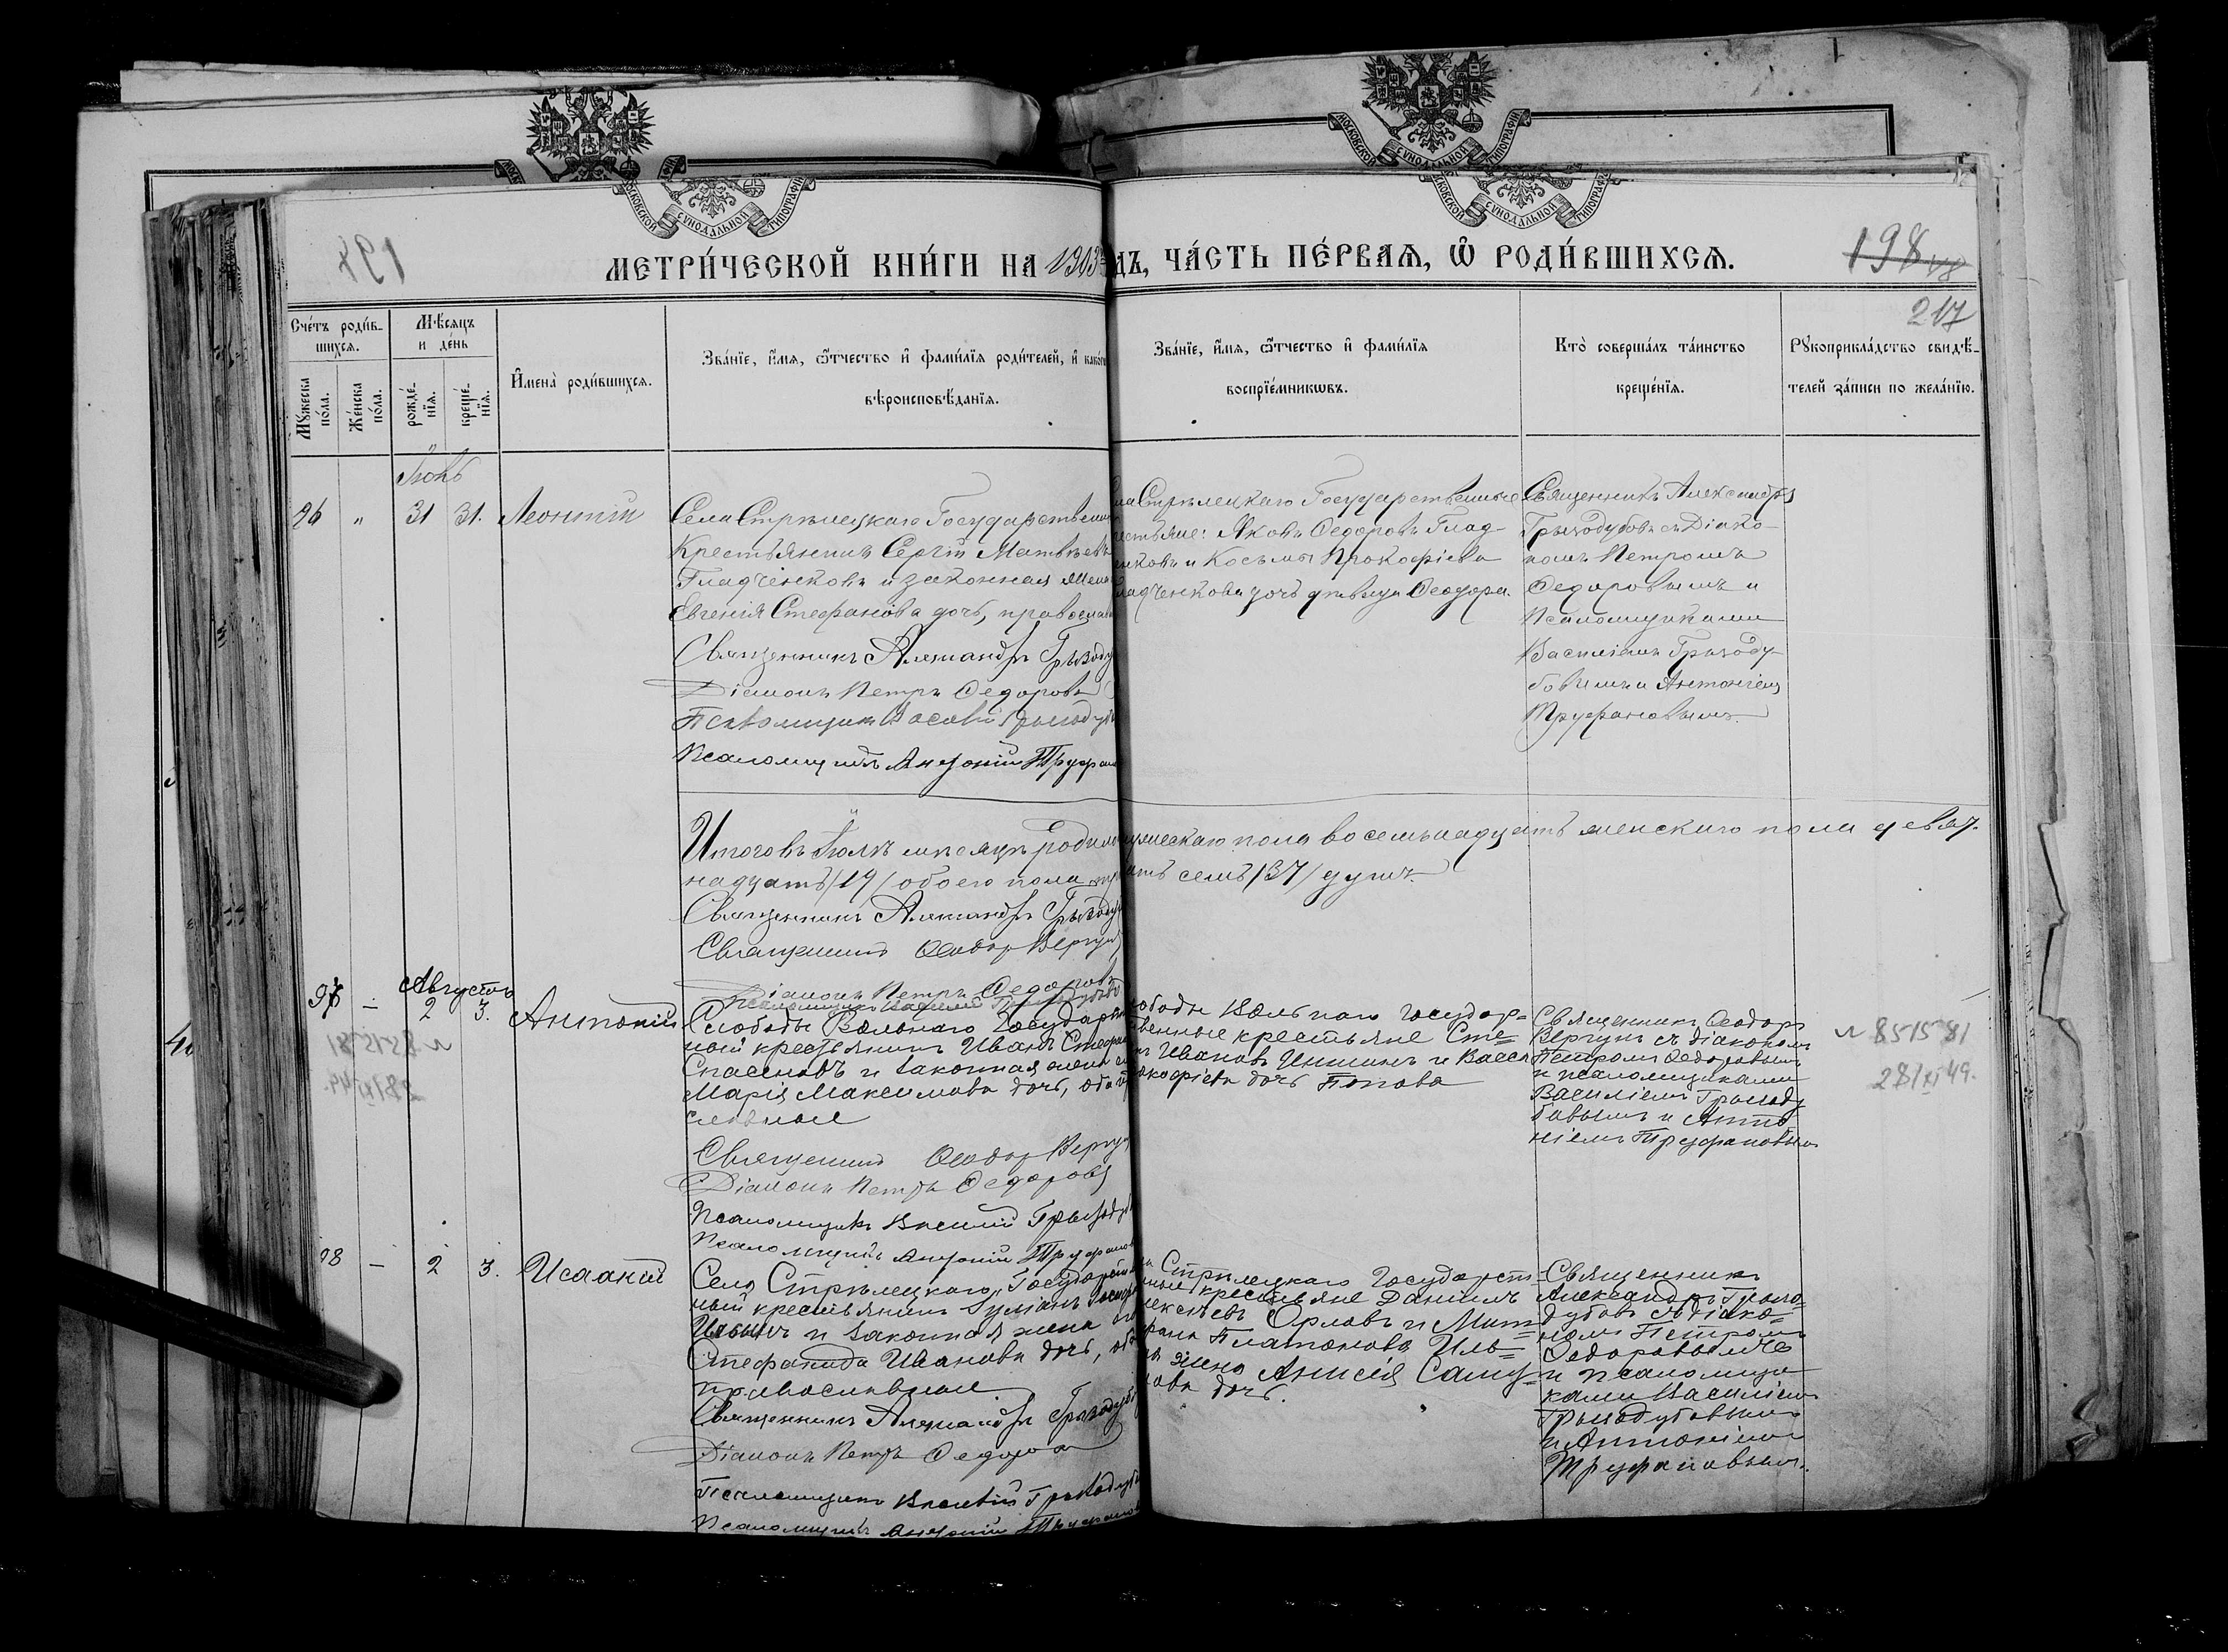 МОСКОВСКОЙ СУНОДАЛЬНОЙ ТИПОГРАФІИ
МОСКОВСКОЙ СУНОДАЛЬНОЙ ТИПОГРАФІИ
МЕТРИ́ЧЕСКОЙ КНИ́ГИ НА 1903 ДЪ, ЧА́СТЬ ПЕ́РВАѦ, Ѿ РОДИ́ВШИХСѦ.
198
217
Сче́тъ роди́в-
шихсѧ.
Мꙋ́жеска по́ла.
Же́нска по́ла.
Мѣ́сѧцъ и де́нь
рожде́-нїѧ.
креще́-нїѧ.
И҆мена̀ роди́вшихсѧ.
Зва́нїе, и҆́мѧ, ѻ҆́тчество и҆ фами́лїѧ роди́телей, и҆ како́гѡ
вѣроисповѣ́данїѧ.
Зва́нїе, и҆́мѧ, ѻ҆́тчество и҆ фами́лїѧ
воспрїе́мникѡвъ.
Кто̀ соверша́лъ та́инство
креще́нїѧ.
Рꙋкоприкла́дство свидѣ́-
телей за́писи по жела́нїю.
26 " 31 31. Леонтий
Села Стрѣлецкаго Государственн
Крестьянинъ Сергій Матвѣевъ
Гладченковъ и законная жена
Евгенія Стефанова дочь, православн
Священникъ Александръ Грызоду
Діаконъ Петръ Федоровъ
Псаломщикъ Василій Грызодуб
Псаломщикъ Антоній Труфан
ла Стрѣлецкаго Государственные
естьяне: Яковъ Федоровъ Глад-
енковъ и Косьмы Прокофіева
ладченкова дочь дѣвица Феодора.
Священникъ Александръ
Грызодубовъ съ Діако-
номъ Петромъ
Федоровымъ и
Псаломщиками
Василіемъ Грызоду-
бовымъ и Антоніемъ
Труфановымъ.
Итого въ Іюлѣ мѣсяцѣ родил мужескаго пола восемьнадцать женскаго пола девят-
надцать /19/ обоего пола тридцать семь /37/ душъ.
Священникъ Александръ Грызоду
Священникъ Феодоръ Вергун
Діаконъ Петръ Федоровъ
Августъ
97 – 2 3. Антоній
Слободы Вольнаго Государствен
ный крестьянинъ Иванъ Стефан
Спасеновъ и законная жена ег
Марія Максимова дочь, оба п
славные
Священникъ Феодоръ Вергун
Діаконъ Петръ Федоровъ
Псаломщикъ Василій Грызодуб
Псаломщикъ Антоній Труфанов
ободы Вольнаго государ=
твенные крестьяне Сте=
нъ Ивановъ и Васса
рокофіева дочь Попова
Священникъ Феодоръ
Вергунъ съ діакономъ
Петромъ Федоровымъ
и псаломщиками
Василіемъ Грызоду
бовымъ и Анто
ніемъ Труфановымъ
№ 8515581
28/XI 49.
98 – 2 3. Исаакій
Села Стрѣлецкаго, Государствен
ный крестьянинъ
и законная жена его
Стефанида Иванова дочь, оба
православные.
Священникъ Александръ Грызодуб
Діаконъ Петръ Федоровъ
Псаломщикъ Василій Грызодуб
Псаломщикъ Антоній Труфанов
ла Стрѣлецкаго Государст=
нные крестьяне Даніилъ
лексѣевъ Орловъ и Мит=
рофана Платонова Иль=
на жена Анисія Саму=
лова дочь.
Священникъ
Александръ Грызо=
дубовъ съ діако=
номъ Петромъ
Федоровымъ
и псаломщи
ками Василіемъ
Грызодубовымъ
и Антоніемъ
Труфановымъ.